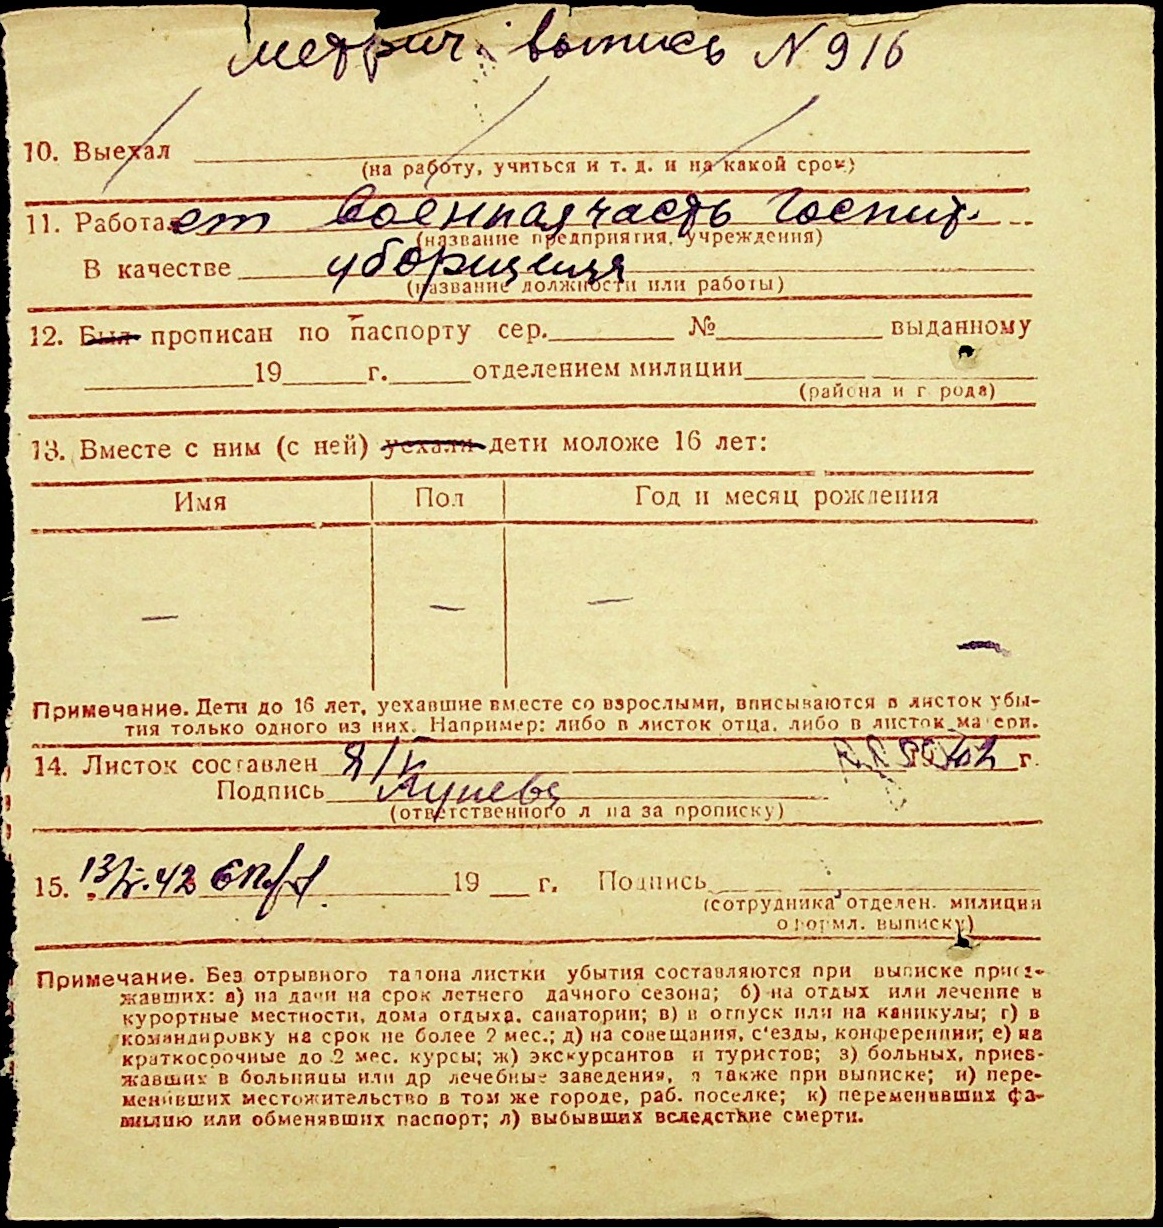 метрич. выпись N 916
10. Выехал
(на работу, учиться и т. д. и на какой срок)
11. Работает военная часть госпит.
(название предприятия, учреждения)
В качестве уборщица
(название должности или работы)
12. Был прописан по паспорту сер. № выданному
19 г. отделением милиции
(района и города)
13. Вместе с ним (с ней) уехали дети моложе 16 лет:
Имя Пол Год и месяц рождения
— — —
Примечание. Дети до 16 лет, уехавшие вместе со взрослыми, вписываются в листок убы-
тия только одного из них. Например: либо в листок отца, либо в листок матери.
14. Листок составлен г.
Подпись
(ответственного лица за прописку)
15. 13/X.42 19 г. Подпись
(сотрудника отделен. милиции
оформл. выписку)
Примечание. Без отрывного талона листки убытия составляются при выписке приез-
жавших: а) на дачи на срок летнего дачного сезона; б) на отдых или лечение в
курортные местности, дома отдыха, санатории; в) в отпуск или на каникулы; г) в
командировку на срок не более 2 мес.; д) на совещания, с'езды, конференции; е) на
краткосрочные до 2 мес. курсы; ж) экскурсантов и туристов; з) больных, приез-
жавших в больницы или др лечебные заведения, а также при выписке; и) пере-
менивших местожительство в том же городе, раб. поселке; к) переменивших фа-
милию или обменявших паспорт; л) выбывших вследствие смерти.